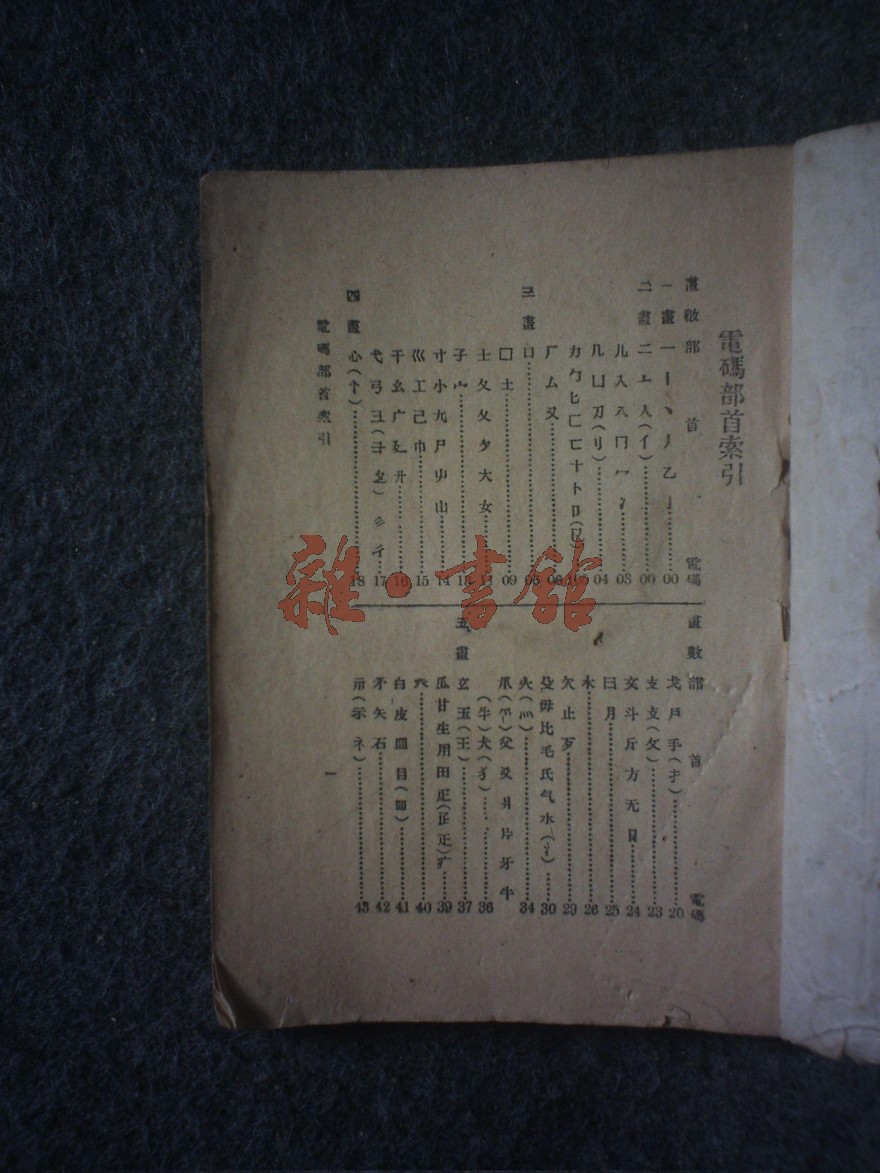 電碼部首索引
畫数部 首 電碼
一畫 一丨丶丿乙亅 00
二畫 二亠人(亻) 00
儿入八冂冖冫 03
几凵刀(刂) 04
力勹匕匚匸十卜卩(㔾)
厂厶又
三畫 口
囗土 09
士夂夊夕大女
子宀
寸小尢尸屮山 14
巛工己巾 15
干幺广廴廾 16
弋弓彐(彑)彡彳 17
四畫 心(忄) 18
畫數部 首 電碼
戈戶手(扌) 20
支攴(攵) 23
文斗斤方无日 24
曰月 25
木 26
欠止歹 29
殳毋比毛氏气水(氵) 30
火(灬) 34
爪(爫)父爻爿片牙牛
(牜)犬(犭) 36
五畫 玄玉(王) 37
瓜甘生用田疋疒 39
癶 40
白皮皿目(罒) 41
矛矢石 42
示(礻) 43
電碼部首索引
一
雜·書館